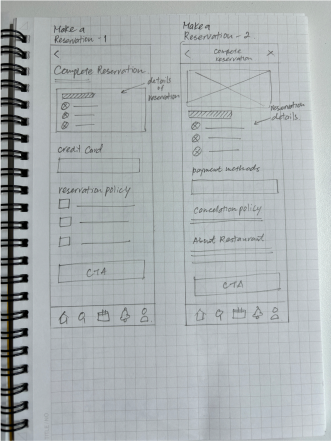 Make a
Reservation - 1
Complete Reservation
details of
reservation
credit Card
reservation policy
CTA
Make a
Reservation - 2
Complete
reservation
reservation
details
payment methods
Cancelation policy
About Restaurant
CTA